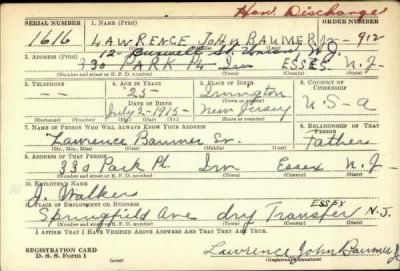 Hon. Discharge
SERIAL NUMBER 1. NAME (Print) ORDER NUMBER
1616 LAWRENCE JOHN BAUMER Jr- 912
12 Burnett St. Union, N.J.
2. ADDRESS (Print)
330 PARK Pl. Irv ESSEX N.J-
(Number and street or R. F. D. number) (Town) (County) (State)
3. TELEPHONE 4. AGE IN YEARS 5. PLACE OF BIRTH 6. COUNTRY OF CITIZENSHIP
-- -25- Irvington
DATE OF BIRTH
July-2-1915- New Jersey U-S-a
7. NAME OF PERSON WHO WILL ALWAYS KNOW YOUR ADDRESS 8. RELATIONSHIP OF THAT PERSON
Lawrence Baumer Sr. Father
(Mr., Mrs., Miss) (First) (Middle) (Last)
9. ADDRESS OF THAT PERSON
330 Park Pl. Irv Essex N.J-
(Number and street or R. F. D. number) (Town) (County) (State)
10. EMPLOYER'S NAME
Walker
11. PLACE OF EMPLOYMENT OR BUSINESS
Springfield Ave dry Transfer ESSEX N.J.
(Number and street or R. F. D. number) (Town) (County) (State)
I AFFIRM THAT I HAVE VERIFIED ABOVE ANSWERS AND THAT THEY ARE TRUE.
REGISTRATION CARD
D. S. S. Form 1 (over) Lawrence John Baumer Jr
(Registrant's signature)